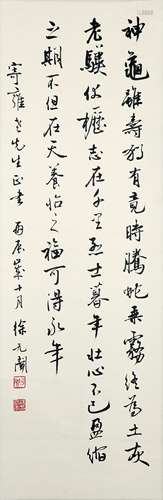 神龜雖壽猶有竟時騰蛇乘霧終為土灰
老驥伏櫪志在千里烈士暮年壯心不已盈縮
之期不但在天養怡之福可得永年
寄雍老先生正書 丙辰嵗十月 徐元